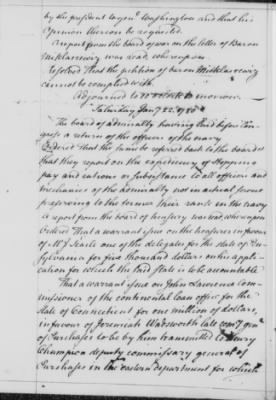 by the president to genl Washington and that his
opinion thereon be requested.
A report from the board of war on the letter of Baron
was read, whereupon
Resolved That the petition of baron
cannot be complied with.
Adjourned to 10 o'Clock to morrow.
Saturday Jany 22. 178
The board of admiralty having laid before Con-
gress a return of the officers of the navy
Ordered That the same be referred back to the board &
that they report on the expediency of stopping
pay and rations or subsistance to all officers and
mechanics of the admiralty not in actual service
preserving to the former their rank in the navy
A report from the board of treasury was read, whereupon
Ordered That a warrant issue on the treasurer in favour
of Mr J Searle one of the delegates for the state of Pen-
sylvania for five thousand dollars on his appli-
cation for which the said state is to be accountable
That a warrant issue on John Lawrence com-
missioner of the continental loan office for the
state of Connecticut for one million of dollars,
in favour of Jeremiah Wadsworth late comy genl
of Purchases to be by him transmitted to Henry
Champion deputy commissary general of
Purchases in the eastern department for which